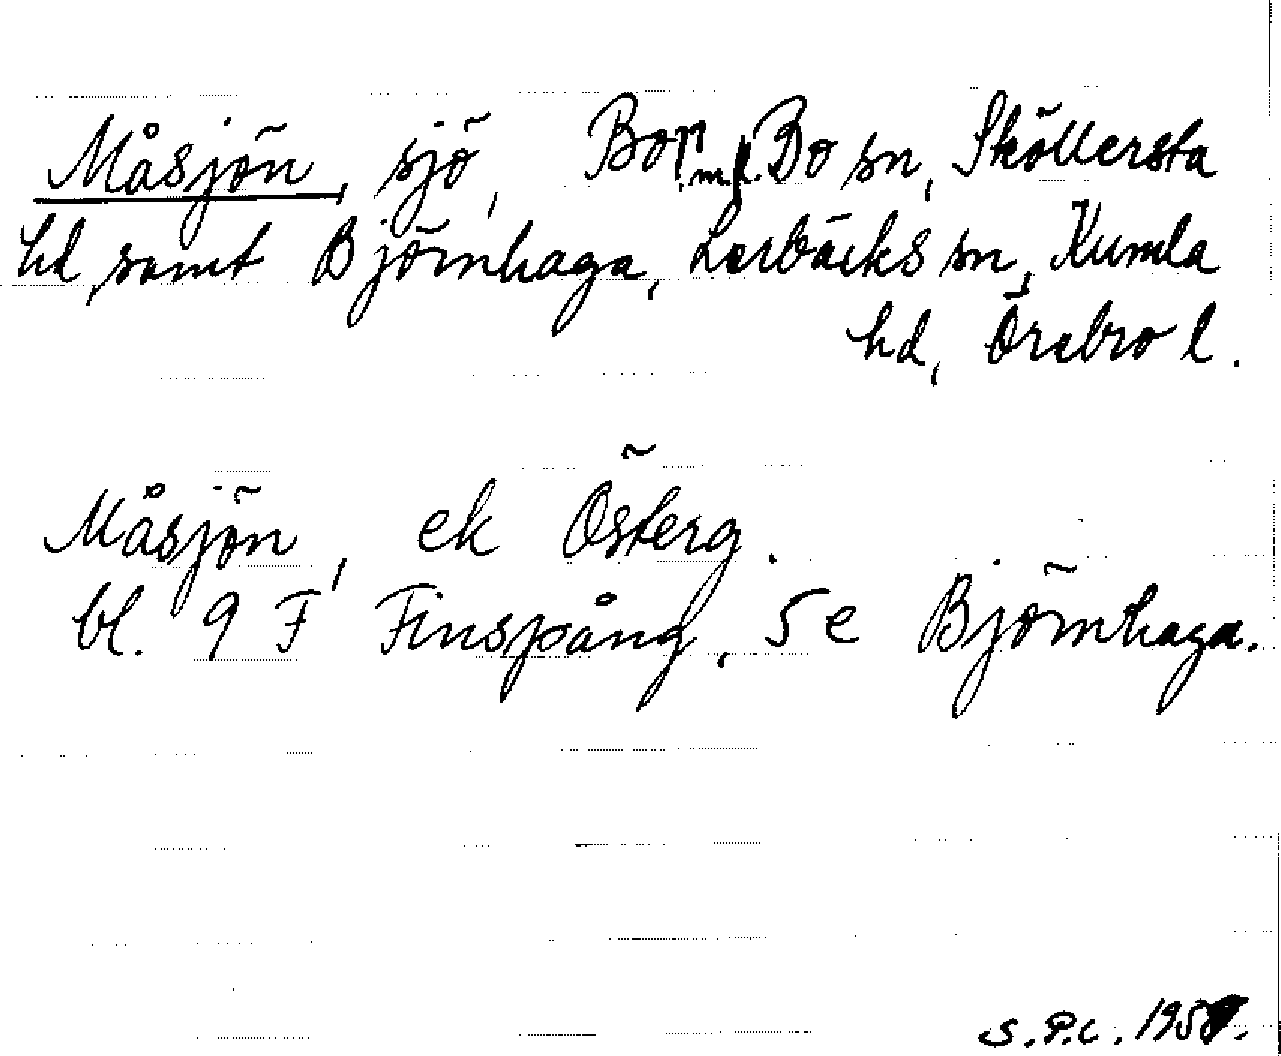 Måsjön, sjö, Bo m.fl. Bo sn, Sköllersta
hd samt Björnhaga, Lerbäcks sn, Kumla
hd, Örebro l.
Måsjön, ek Österg.
bl. 9 F Finspång, 5e Björnhaga.
S.P.C.